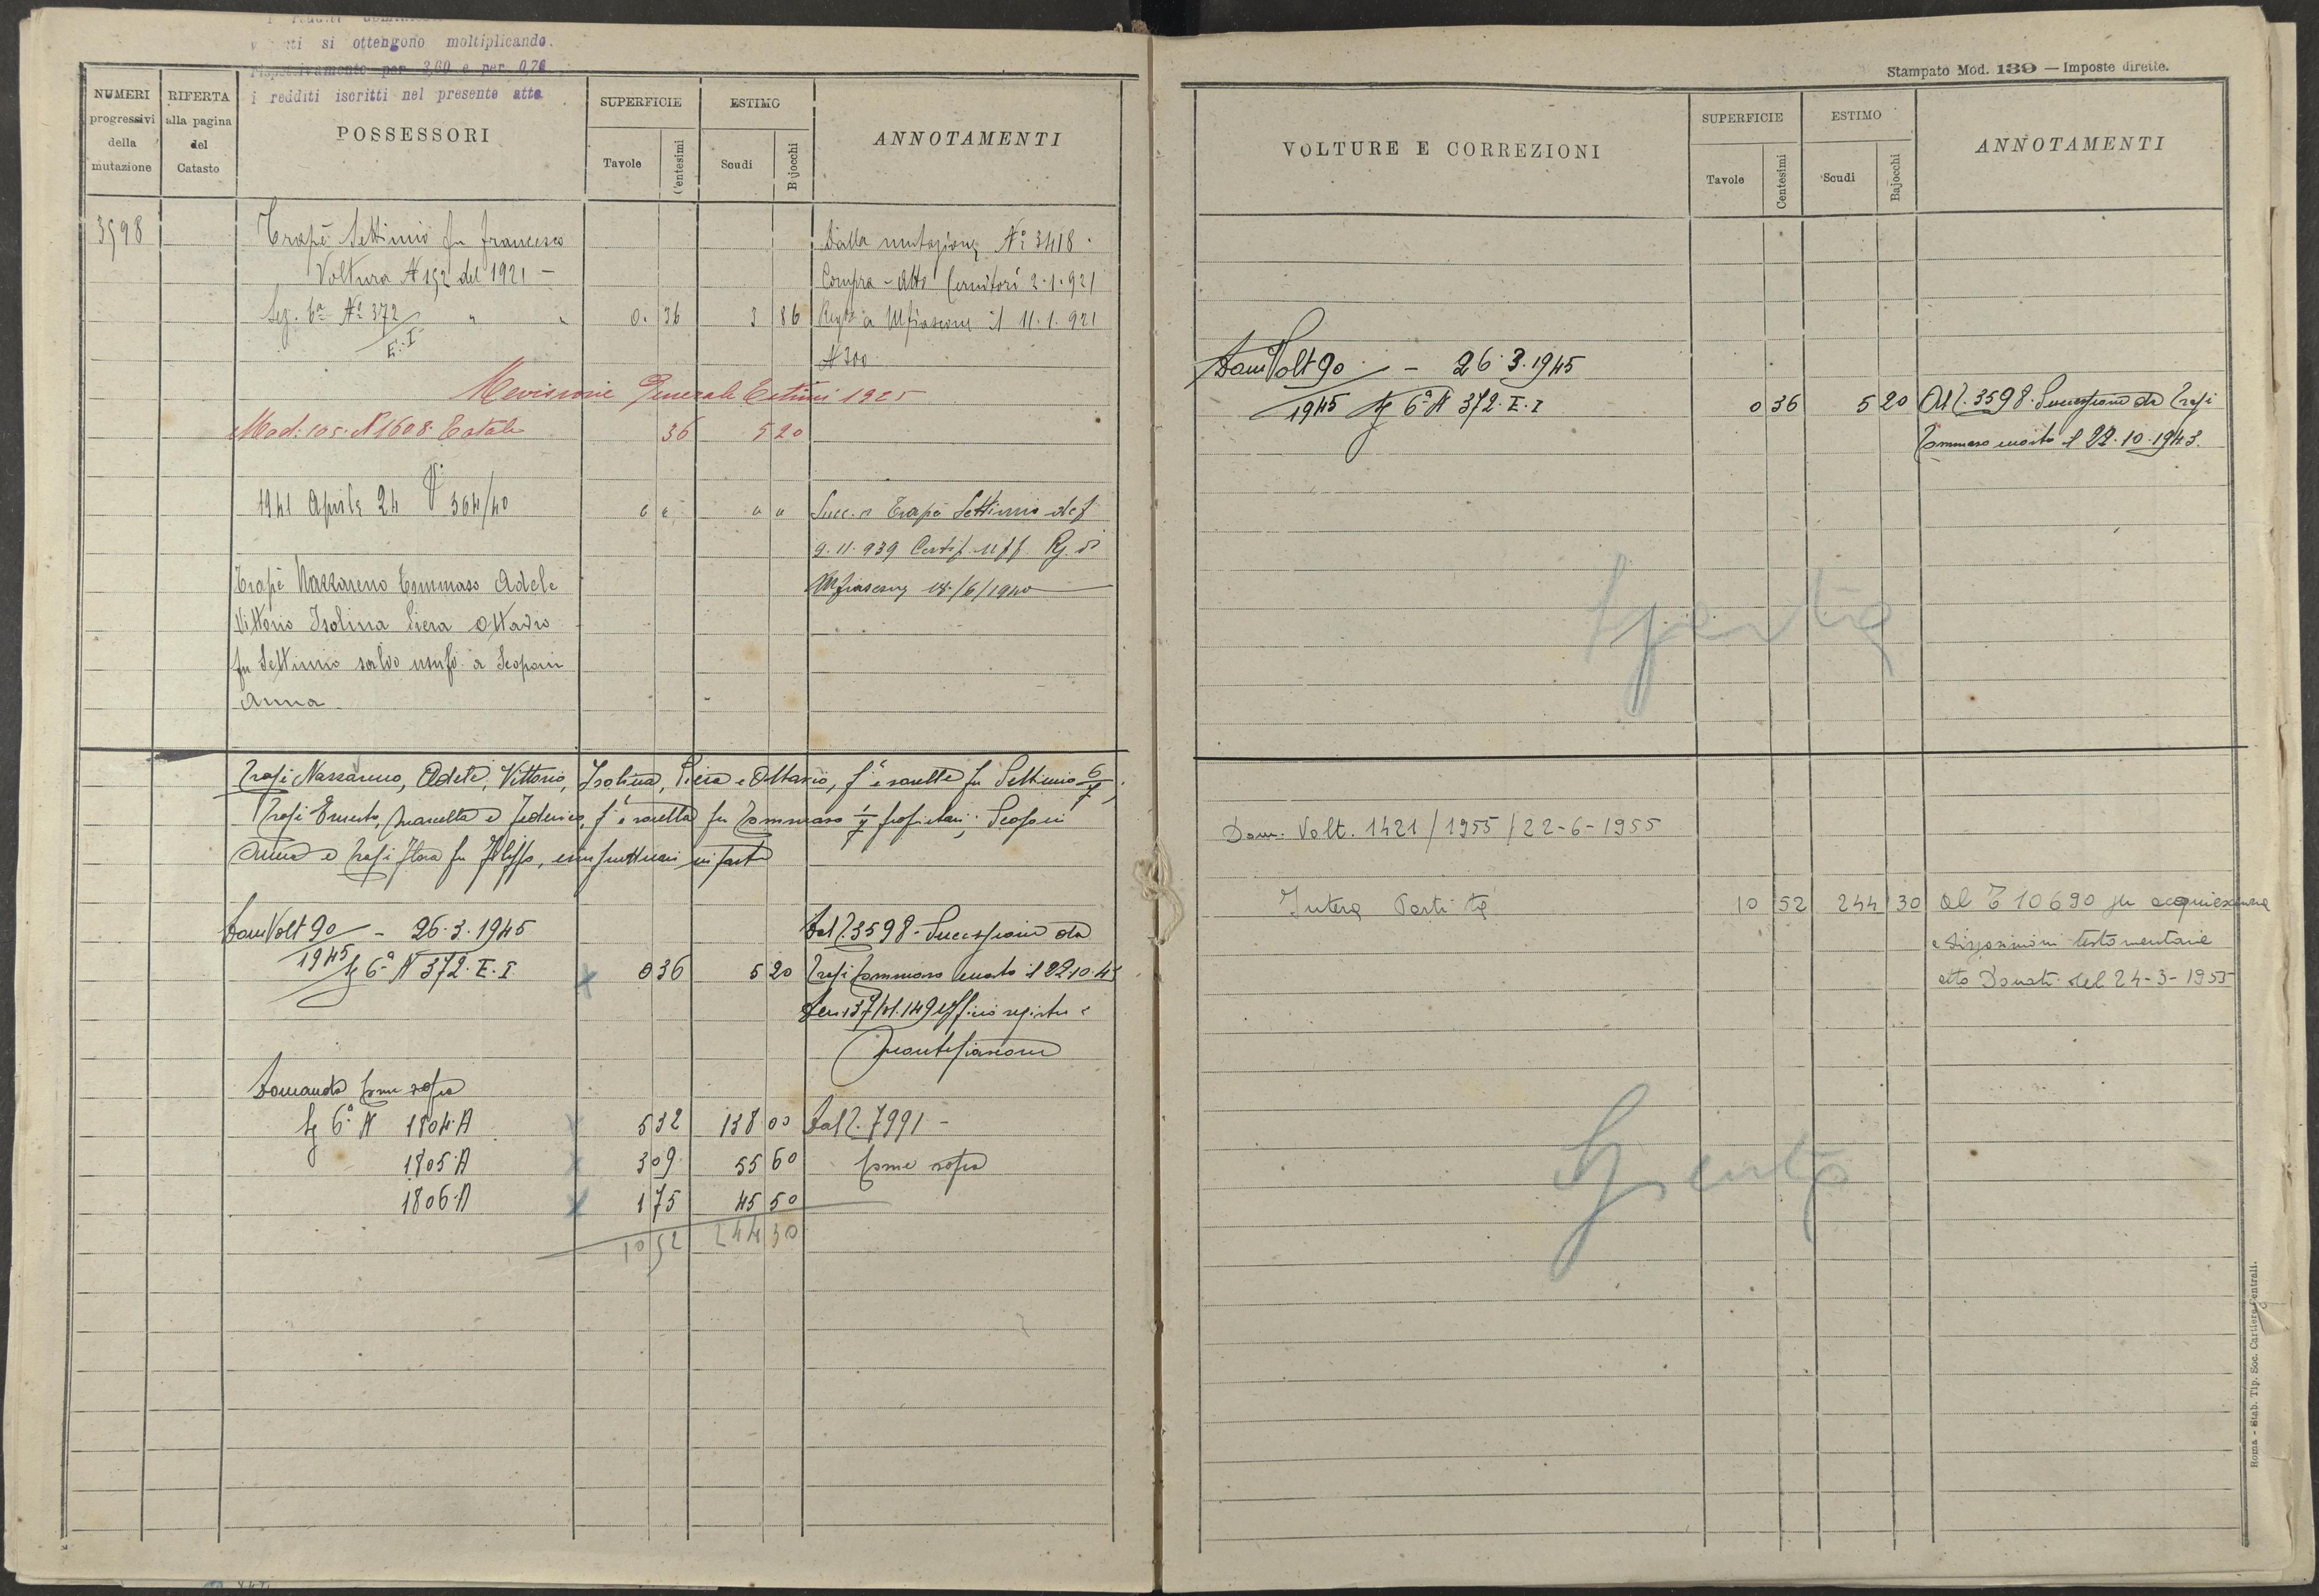 si ottengono moltiplicando
per 3,60 e per 0,76
i redditi iscritti nel presente atto
NUMERI
progressivi
della
mutazione
RIFERTA
alla pagina
del
Catasto
POSSESSORI
SUPERFICIE
Tavole
Centesimi
ESTIMO
Scudi
Bajocchi
ANNOTAMENTI
3598
Trapè Settimio fu Francesco
Dalla mutazione N° 3418.
Voltura N 152 del 1921 -
Compra - Atto 2.1.921
Sez. 6ª N° 372 " "
E.I
0. 36 3 86
a Mfiascone il 11.1.921
N 300
Revisione Generale Estimi 1925
Mod: 105. N 1608. Totale 36 5 20
1941 Aprile 24 V 364/40
" " " "
Succ. a Trapè Settimio def
9.11.939 Certif. Uff Rg. di
Mfiascone 18/6/1940
Trapè Nazzareno Tommaso Adele
Vittorio Isolina Piera Ottavio
fu Settimio salvo usuf. a Scoponi
Anna
Trapè Nazzareno, Adele, Vittorio, Isolina, Piera e Ottavio, f.i e sorelle fu Settimio 6/7,
Trapè Ernesto, e Federico, f.i e sorella fu Tommaso 1/7 proprietari; Scoponi
Anna e Trapè fu usufruttuari in parte
Dom Volt 90/1945 - 26.3.1945
Sez 6ª N 372. E.I
0 36 5 20
Dal P. 3598. Successione da
Trapè Tommaso morto il 22.10.43
Den 137 Vol. 149 Ufficio registro
Montefiascone
Domanda come sopra
Sez 6ª N 1804.A 5 32 138 00 Dal P. 7991 -
1805.A 3 09 55 60 Come sopra
1806.A 1 75 45 50
10 52 244 30
Stampato Mod. 139 — Imposte dirette.
VOLTURE E CORREZIONI
SUPERFICIE
Tavole
Centesimi
ESTIMO
Scudi
Bajocchi
ANNOTAMENTI
Dom Volt 90/1945 - 26.3.1945
Sez 6ª N 372. E.I
0 36 5 20
Al P. 3598. Successione da Trapè
Tommaso morto il 22.10.1943.
Spenta
Dom. Volt. 1421/1955/22-6-1955
Intera Partita 10 52 244 30
Al P 10690 per acquiescenza
a disposizioni testamentarie
atto Donati del 24-3-1955
Spenta
Roma - Stab. Tip. Soc. Cartiere Centrali.